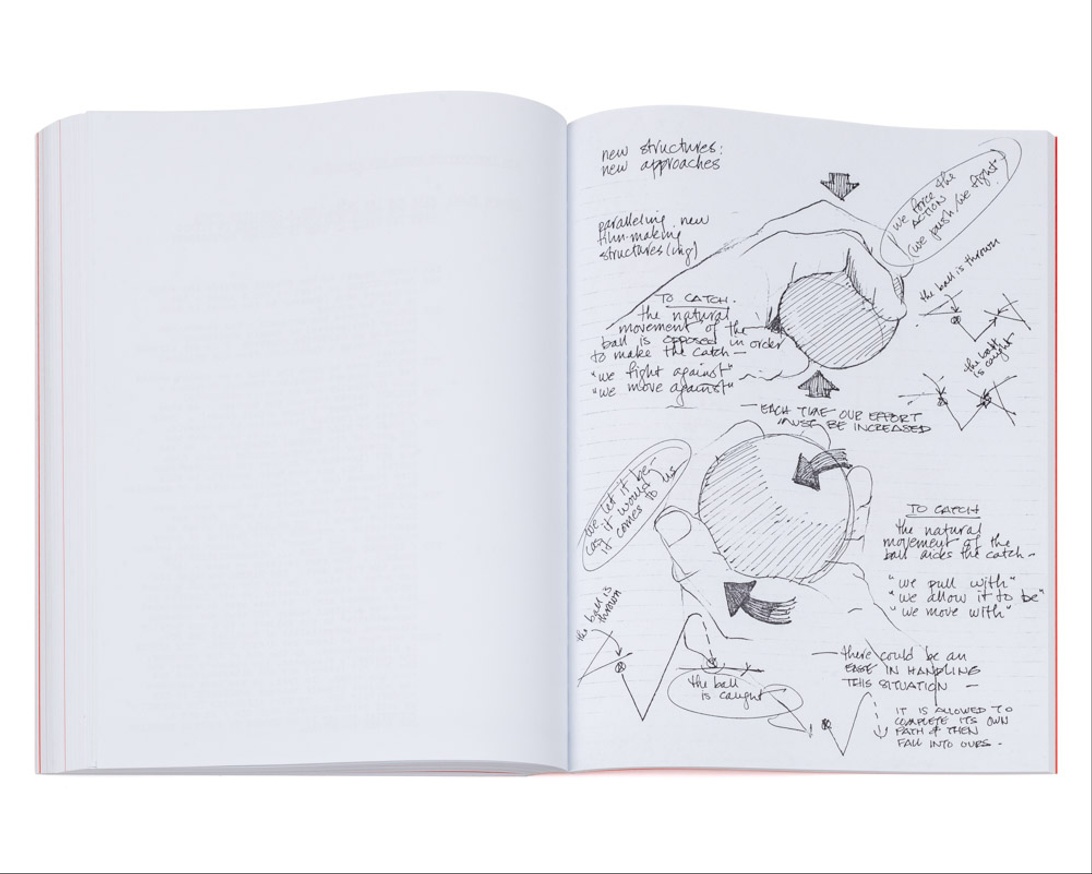 new structures:
new approaches
we force the
ACTION
(we push/we fight)
paralleling new
film-making
structures(ing)
the ball is thrown
TO CATCH.
the natural
movement of the
ball is opposed in order
to make the catch —
"we fight against"
"we move against"
the ball
is caught
— EACH TIME OUR EFFORT
MUST BE INCREASED
we let it be —
as it would
it comes to us
TO CATCH
the natural
movement of the
ball aides the catch —
"we pull with"
"we allow it to be"
"we move with"
the ball is
thrown
— there could be an
EASE IN HANDLING
THIS SITUATION —
the ball
is caught
IT IS ALLOWED TO
COMPLETE ITS OWN
PATH & THEN
FALL INTO OURS -